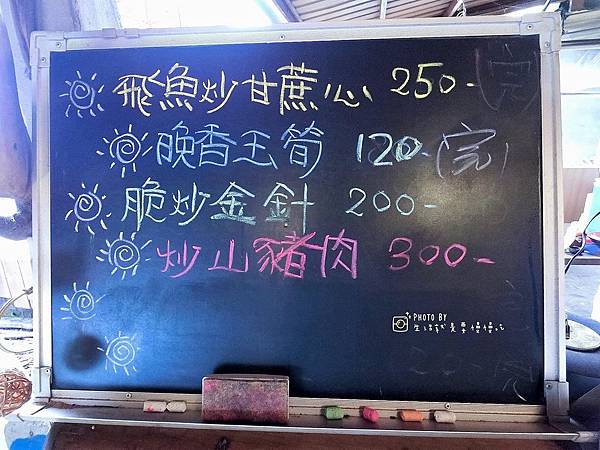 飛魚炒甘蔗心 250-
晚香玉筍 120-(完)
脆炒金針 200-
炒山豬肉 300-
PHOTO BY
生活就是要慢慢玩